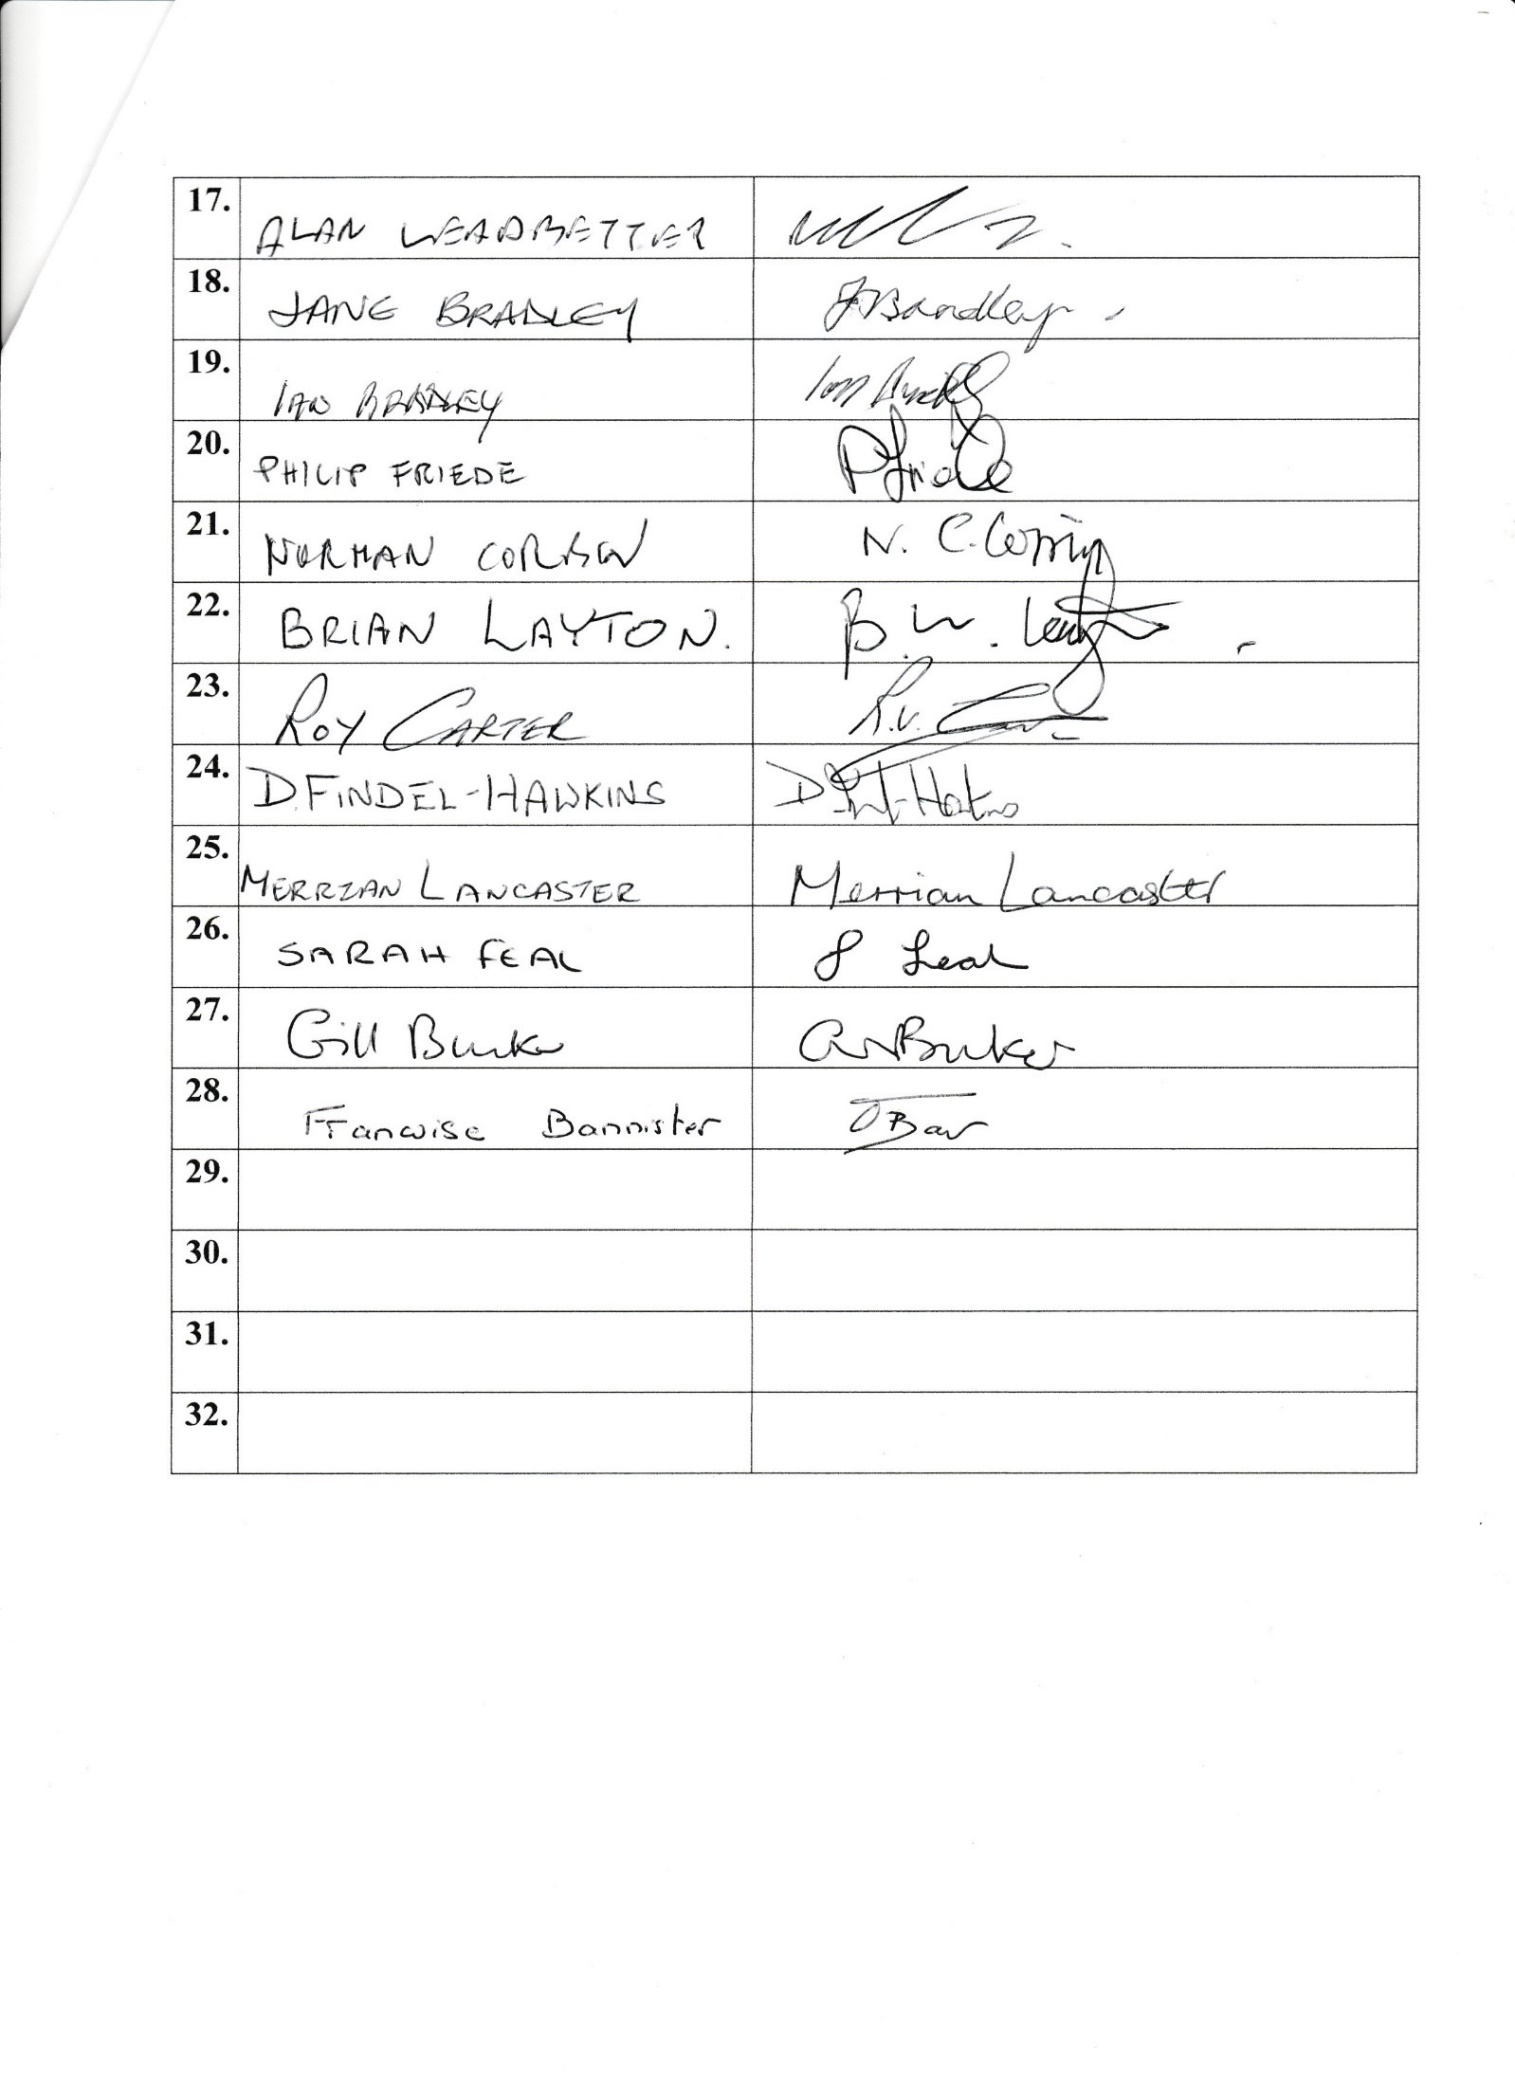 17. ALAN LEADBETTER
18. JANE BRADLEY JBradley
19. IAN BRADLEY Ian
20. PHILIP FRIEDE P Friede
21. NORMAN N. C.
22. BRIAN LAYTON. B. W. Layton
23. ROY CARTER R.V.
24. D. FINDEL-HAWKINS D
25. MERRIAN LANCASTER Merrian Lancaster
26. SARAH FEAL S Feal
27. Gill Bunker Bunker
28. Francoise Bannister
29.
30.
31.
32.